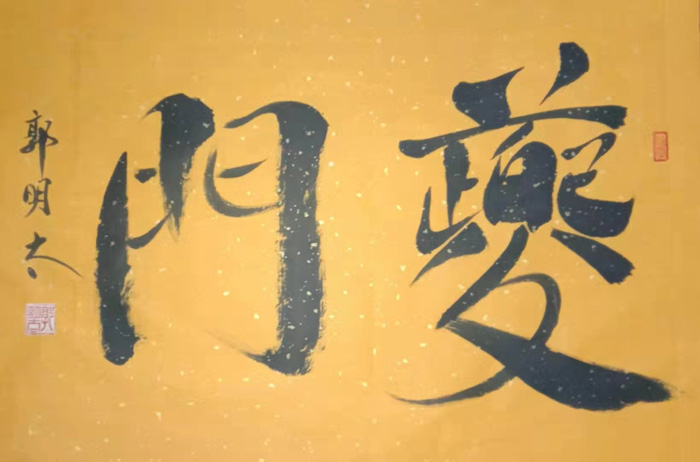 夔門
郭明太